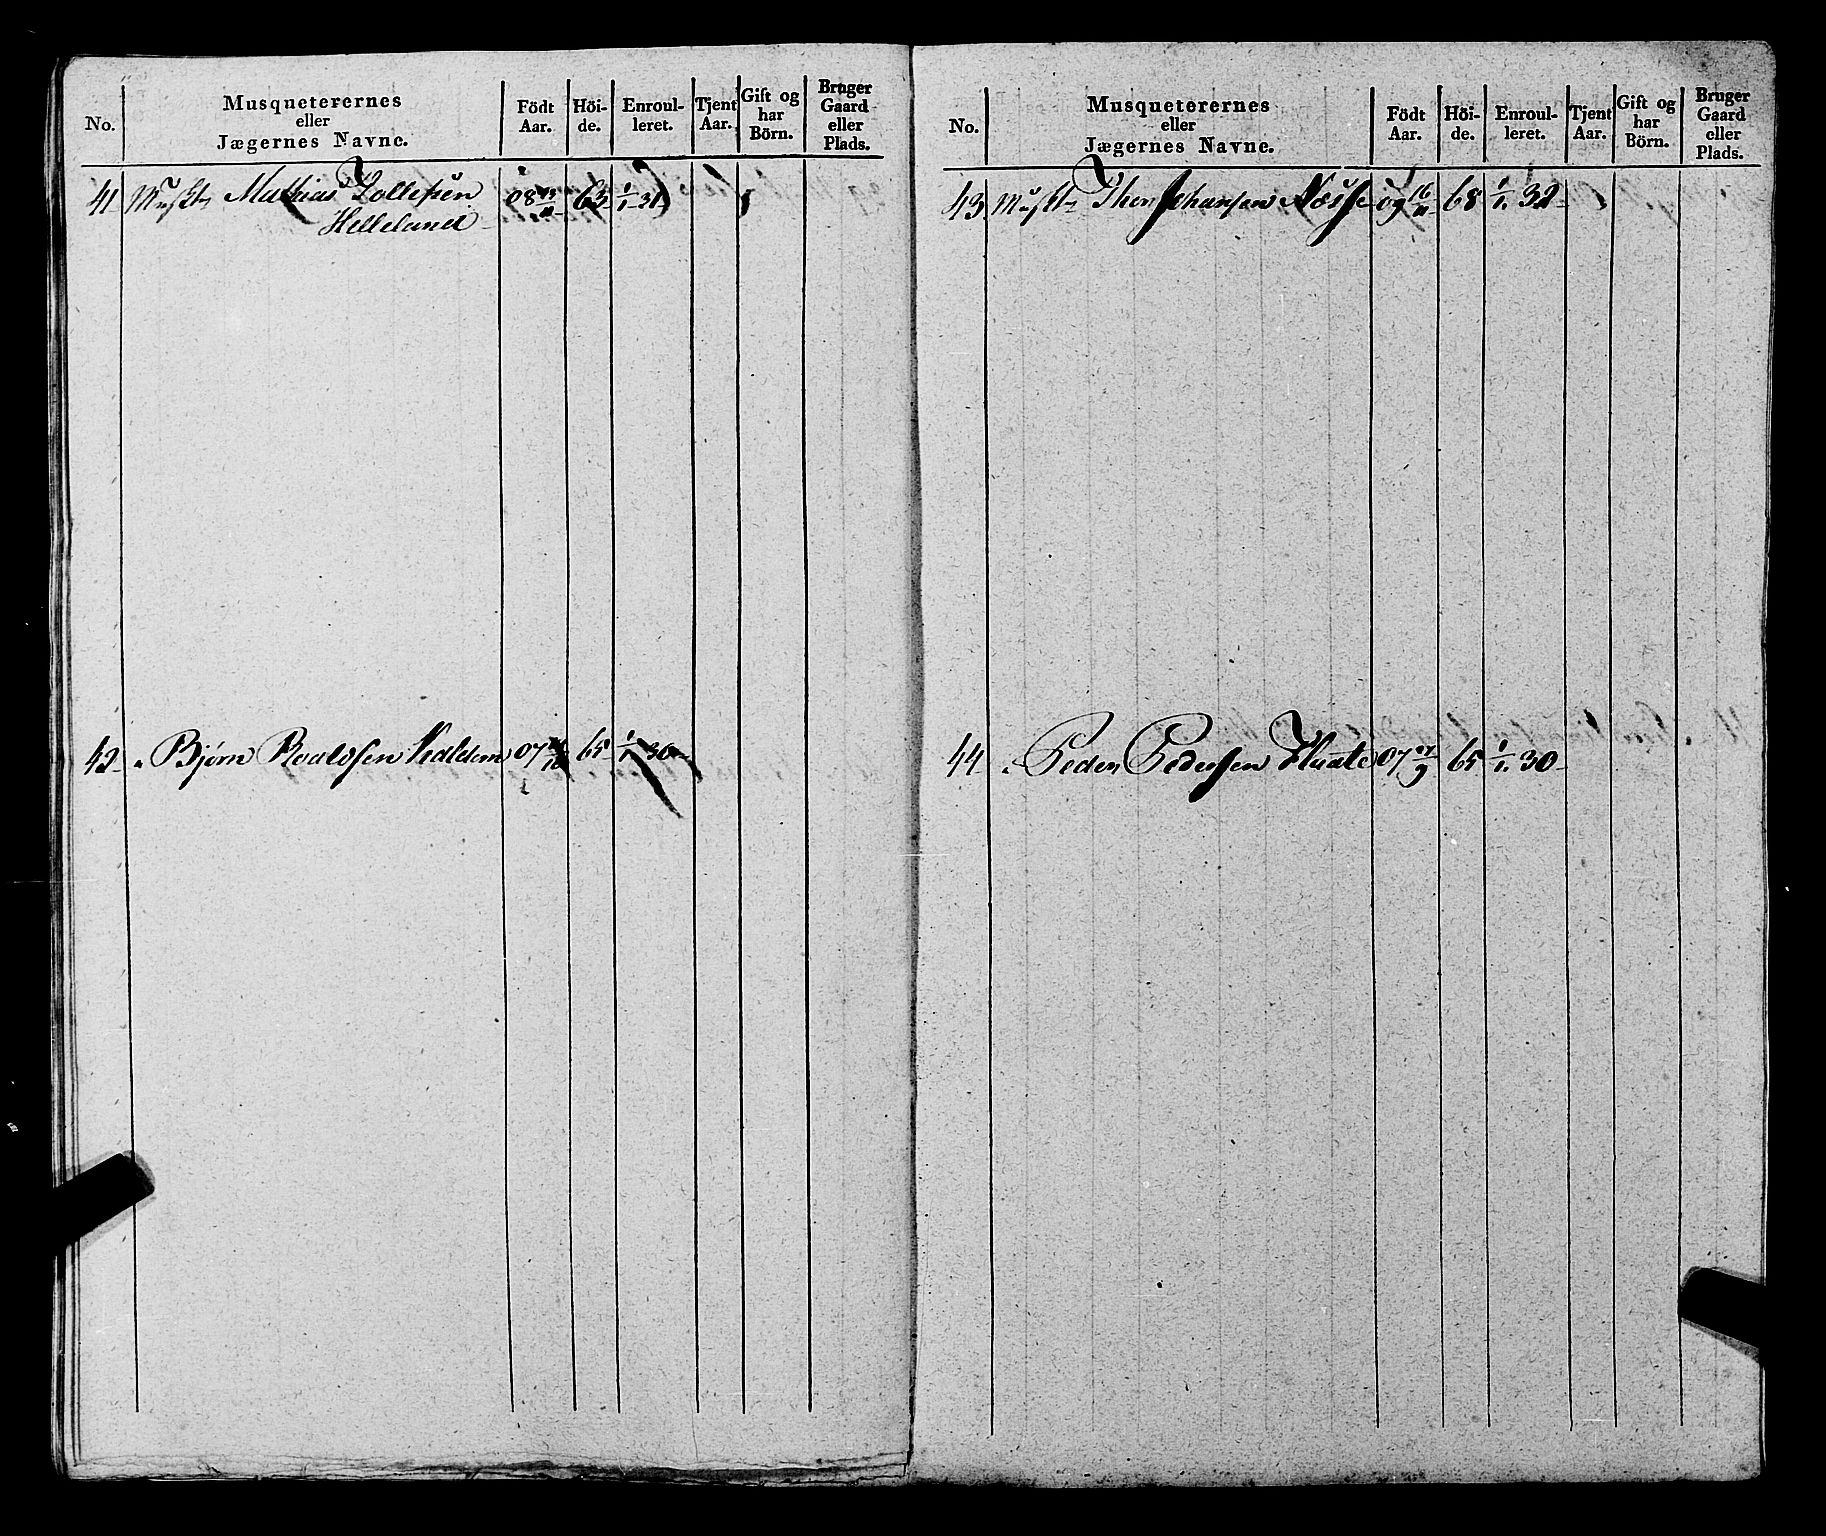 No. Musqueterernes eller Jægernes Navne. Födt Aar. Höi-de. Enroul-leret. Tjent Aar. Gift og har Börn. Bruger Gaard eller Plads.
41 Muskt Mathias Tollefsen 08 63 1/1 31
Helleland
42 " Bjørn Roaldsen 07 65 1/1 30
No. Musqueterernes eller Jægernes Navne. Födt Aar. Höi-de. Enroul-leret. Tjent Aar. Gift og har Börn. Bruger Gaard eller Plads.
43 Muskt Johansen Næsse 09 16/11 68 1/1 32
44 " Peder Pedersen 07 27/9 65 1/1 30